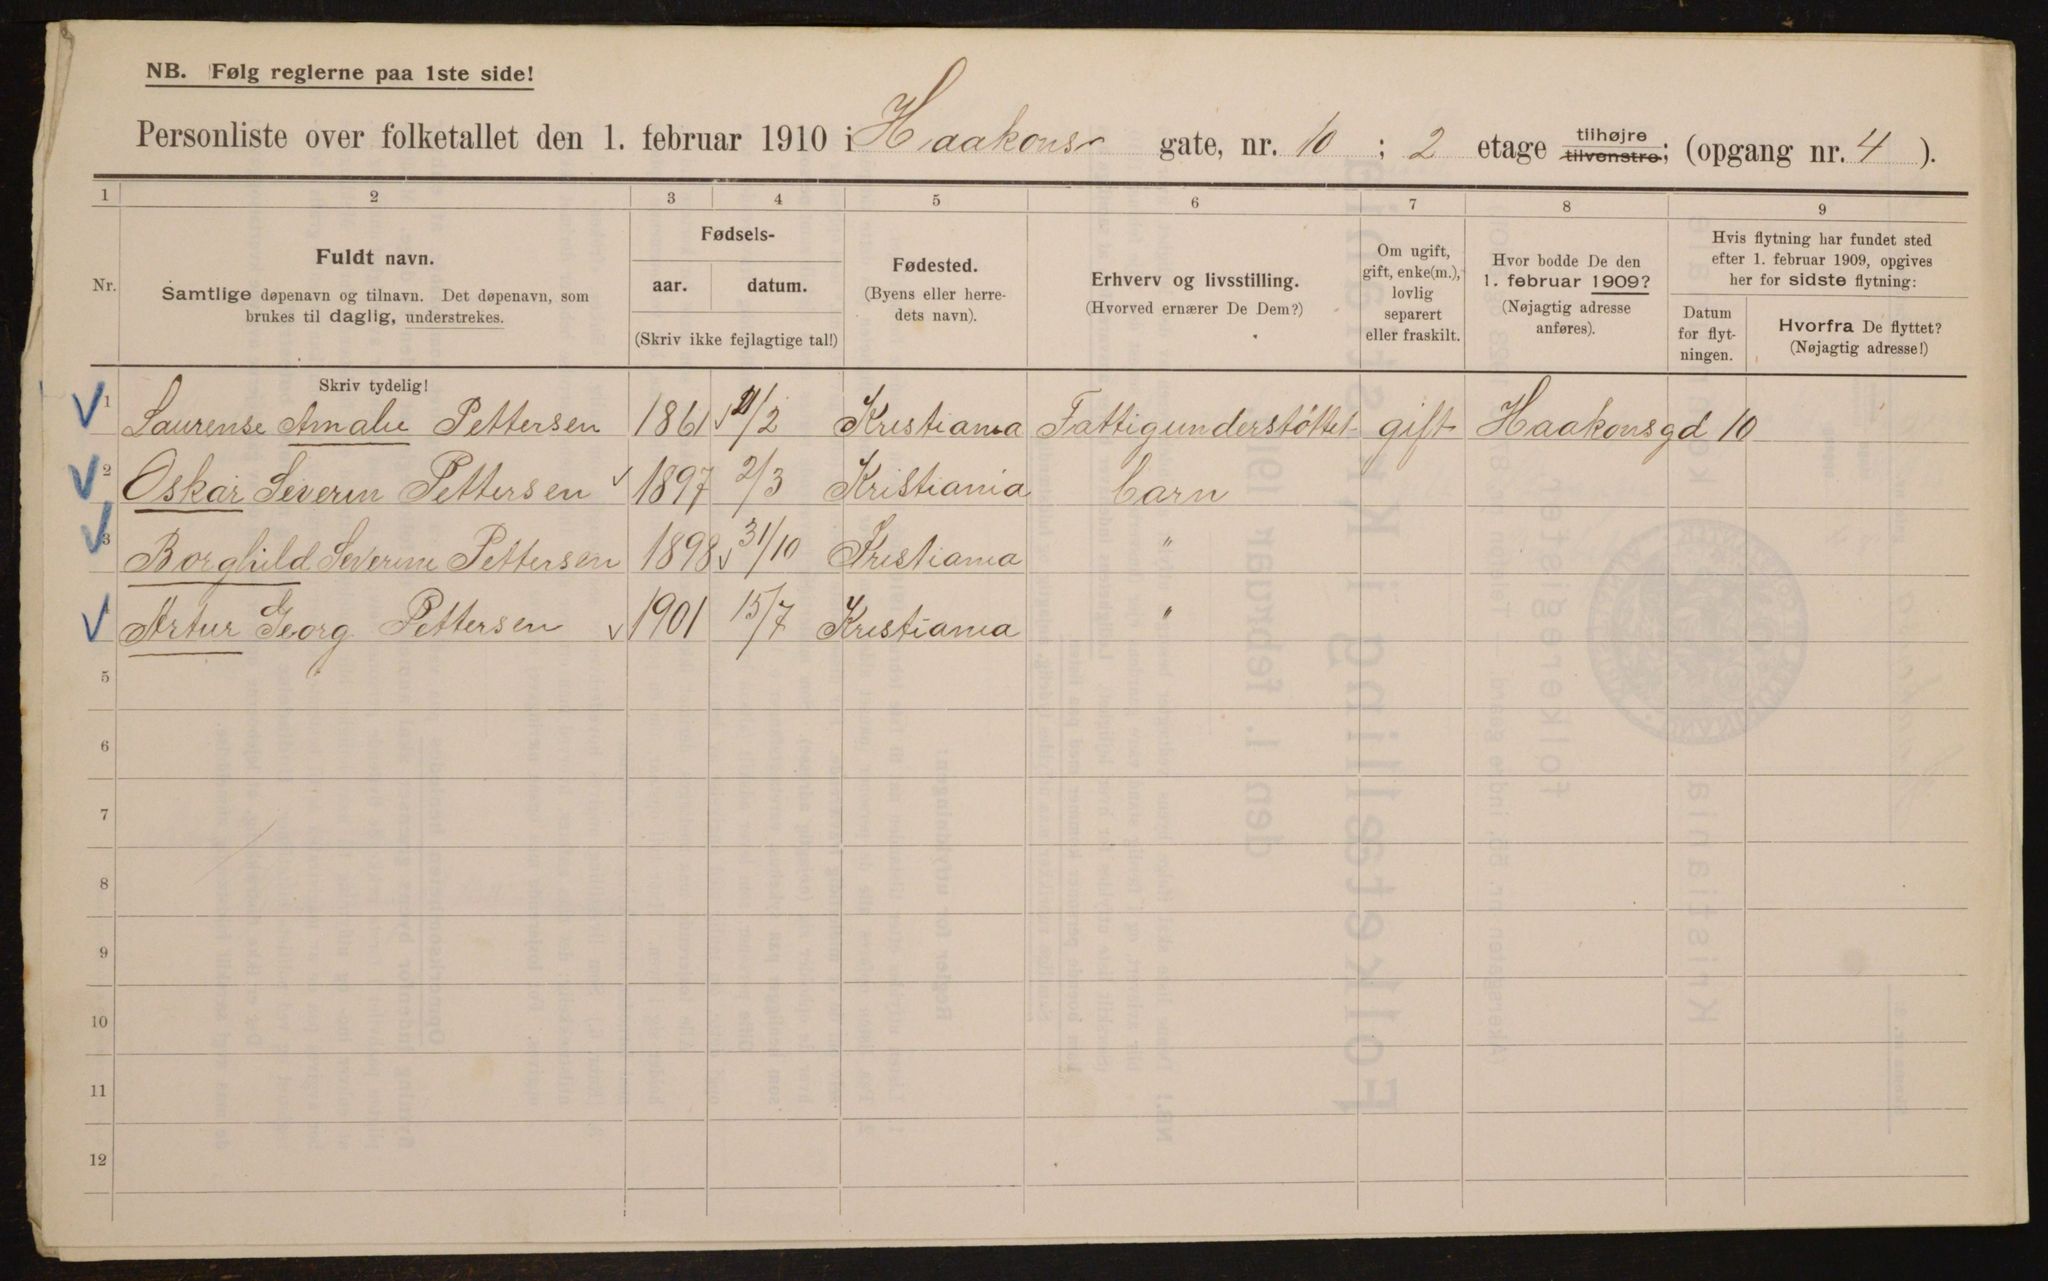 NB. Følg reglerne paa 1ste side!
Personliste over folketallet den 1. februar 1910 i Haakons gate, nr. 10 ; 2 etage tilhøjre tilvenstre; (opgang nr. 4 ).
1 2 3 4 5 6 7 8 9
Nr.
Fuldt navn.
Samtlige døpenavn og tilnavn. Det døpenavn, som
brukes til daglig, understrekes.
Fødsels-
aar. datum.
(Skriv ikke fejlagtige tal!)
Fødested.
(Byens eller herre-
dets navn).
Erhverv og livsstilling.
(Hvorved ernærer De Dem?)
Om ugift,
gift, enke(m.),
lovlig
separert
eller fraskilt.
Hvor bodde De den
1. februar 1909?
(Nøjagtig adresse
anføres).
Hvis flytning har fundet sted
efter 1. februar 1909, opgives
her for sidste flytning:
Datum
for flyt-
ningen.
Hvorfra De flyttet?
(Nøjagtig adresse!)
Skriv tydelig!
1 Laurense Amalie Pettersen 1861 /2 Kristiania Fattigunderstöttet gift Haakonsgd 10
2 Oskar Severin Pettersen 1897 2/3 Kristiania barn
3 Borghild Severine Pettersen 1898 31/10 Kristiania "
4 Artur Georg Pettersen 1901 15/7 Kristiania "
5
6
7
8
9
10
11
12